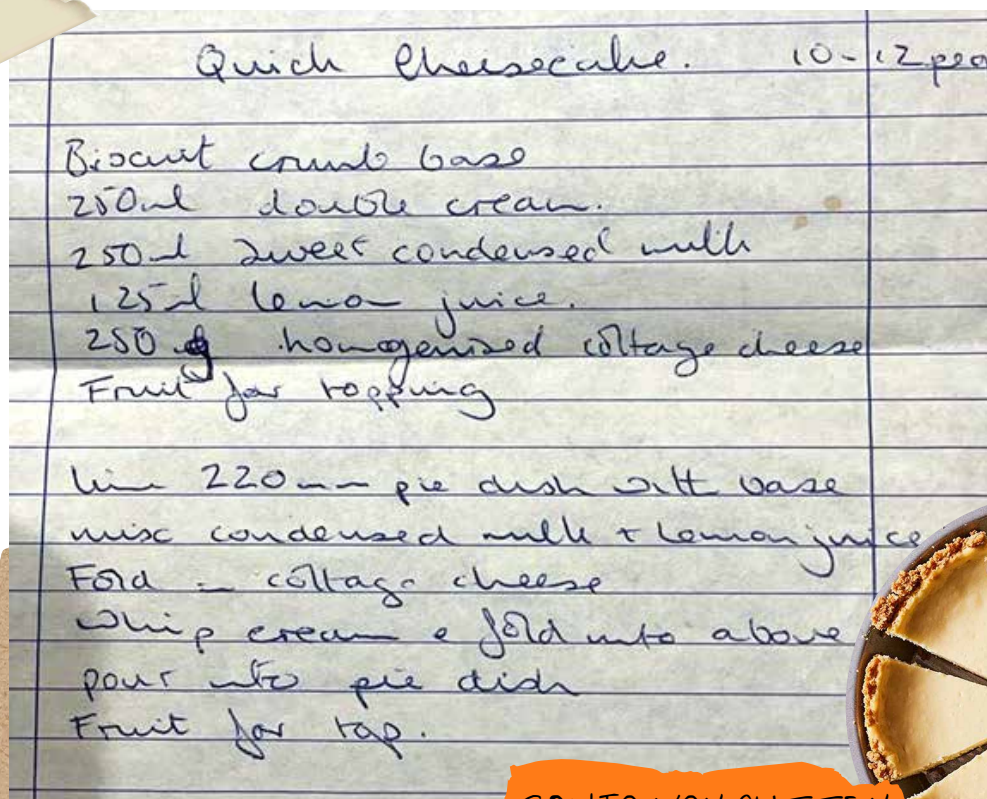 Quick Cheesecake. 10-12 peo
Biscuit crumb base
250ml double cream.
250ml sweet condensed milk
125ml lemon juice.
250 g homogenised cottage cheese
Fruit for topping
Line 220mm pie dish with base
mix condensed milk + lemon juice
Fold in cottage cheese
Whip cream & fold into above
pour into pie dish
Fruit for top.